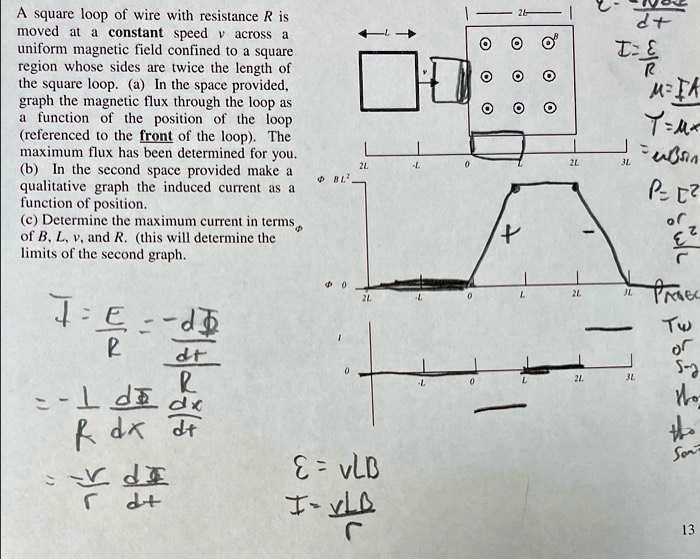 A square loop of wire with resistance R is
moved at a constant speed v across a
uniform magnetic field confined to a square
region whose sides are twice the length of
the square loop. (a) In the space provided,
graph the magnetic flux through the loop as
a function of the position of the loop
(referenced to the front of the loop). The
maximum flux has been determined for you.
(b) In the second space provided make a
qualitative graph the induced current as a
function of position.
(c) Determine the maximum current in terms
of B, L, v, and R. (this will determine the
limits of the second graph.
2L
L
v
B
2L -L 0 L 2L 3L
Φ BL²
+ -
Φ 0
2L -L 0 L 2L 3L
I
0
-L 0 L 2L 3L
I = E/R = -dΦ/dt / R
= -1/R dΦ/dx dx/dt
= -v/r dΦ/dt
ε = vLB
I = vLB/r
dt
I = ε/R
μ = IA
P = I²
or
ε²/r
or
13